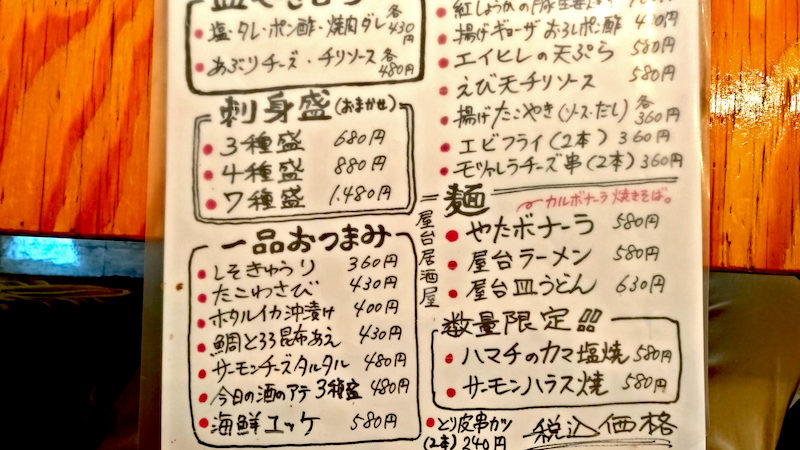 塩・タレ・ポン酢・焼肉ダレ 各430円
あぶりチーズ・チリソース 各480円
刺身盛(おまかせ)
3種盛 680円
4種盛 880円
7種盛 1.480円
一品おつまみ
しそきゅうり 360円
たこわさび 430円
ホタルイカ沖漬け 400円
鯛とろろ昆布あえ 430円
サーモンチーズタルタル 480円
今日の酒のアテ3種盛 480円
海鮮ユッケ 580円
屋台居酒屋
紅しょうがの
揚げギョーザ おろしポン酢
エイヒレの天ぷら 580円
えび天チリソース 580円
揚げたこやき(ソース・だし) 各360円
エビフライ(2本) 360円
モツァレラチーズ串(2本) 360円
麺
カルボナーラ焼きそば。
やたボナーラ 580円
屋台ラーメン 580円
屋台皿うどん 630円
数量限定!!
ハマチのカマ塩焼 580円
サーモンハラス焼 580円
とり皮串カツ
(2本) 240円
税込価格